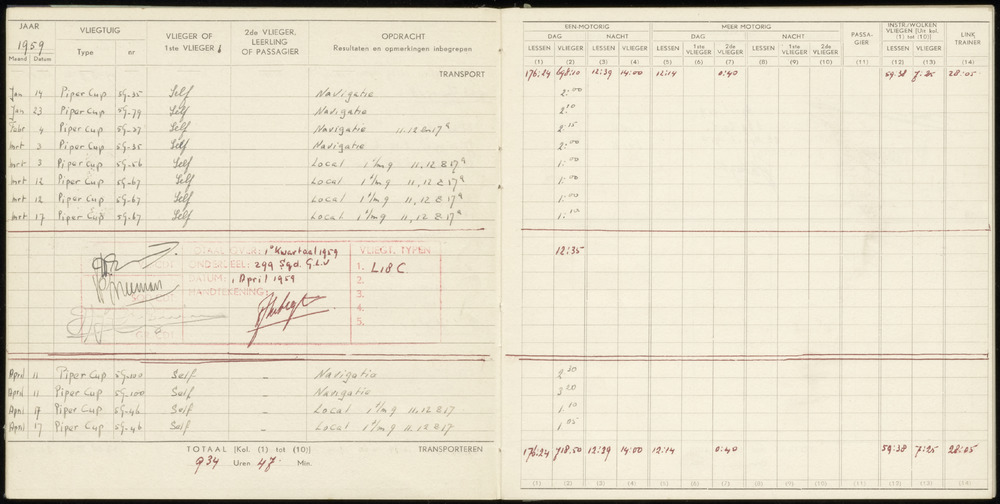 JAAR VLIEGTUIG VLIEGER OF 1ste VLIEGER 2de VLIEGER, LEERLING OF PASSAGIER OPDRACHT
1959 Resultaten en opmerkingen inbegrepen
Maand Datum Type nr
TRANSPORT
Jan 14 Piper Cup 59-35 Self Navigatie
Jan 23 Piper Cup 59-79 Self Navigatie
Febr 4 Piper Cup 59-27 Self Navigatie 11.12 en 17a
mrt 3 Piper Cup 59-35 Self Navigatie
mrt 3 Piper Cup 59-56 Self Local 1 t/m 9 11, 12 & 17a
mrt 12 Piper Cup 59-67 Self Local 1 t/m 9 11, 12 & 17a
mrt 12 Piper Cup 59-67 Self Local 1 t/m 9 11, 12 & 17a
mrt 17 Piper Cup 59-67 Self Local 1 t/m 9 11, 12 & 17a
TOTAAL OVER: 1e Kwartaal 1959 VLIEGT. TYPEN
ONDERDEEL: 299 Sqd. G.L.V 1. L18C.
DATUM: 1 April 1959 2.
HANDTEKENING: 3.
4.
5.
April 11 Piper Cup 59-100 Self - Navigatie
April 11 Piper Cup 59-100 Self - Navigatie
April 17 Piper Cup 59-46 Self - Local 1 t/m 9 11.12 & 17
April 17 Piper Cup 59-46 Self - Local 1 t/m 9 11.12 & 17
TOTAAL (Kol. (1) tot (10)) TRANSPORTEREN
934 Uren 47 Min.
EEN-MOTORIG MEER MOTORIG PASSA-GIER INSTR./WOLKEN VLIEGEN (Uit kol. (1) tot (10)) LINK TRAINER
DAG NACHT DAG NACHT
LESSEN VLIEGER LESSEN VLIEGER LESSEN 1ste VLIEGER 2de VLIEGER LESSEN 1ste VLIEGER 2de VLIEGER LESSEN VLIEGER
(1) (2) (3) (4) (5) (6) (7) (8) (9) (10) (11) (12) (13) (14)
176:24 698:10 12:39 14:00 12:14 0:40 59:38 7:25 28:05
2:00
2:10
2:15
2:00
1:00
1:00
1:00
1:10
12:35
2 30
3 20
1.10
1 05
176:24 718.50 12:39 14:00 12:14 0:40 59:38 7:25 28:05
(1) (2) (3) (4) (5) (6) (7) (8) (9) (10) (11) (12) (13) (14)